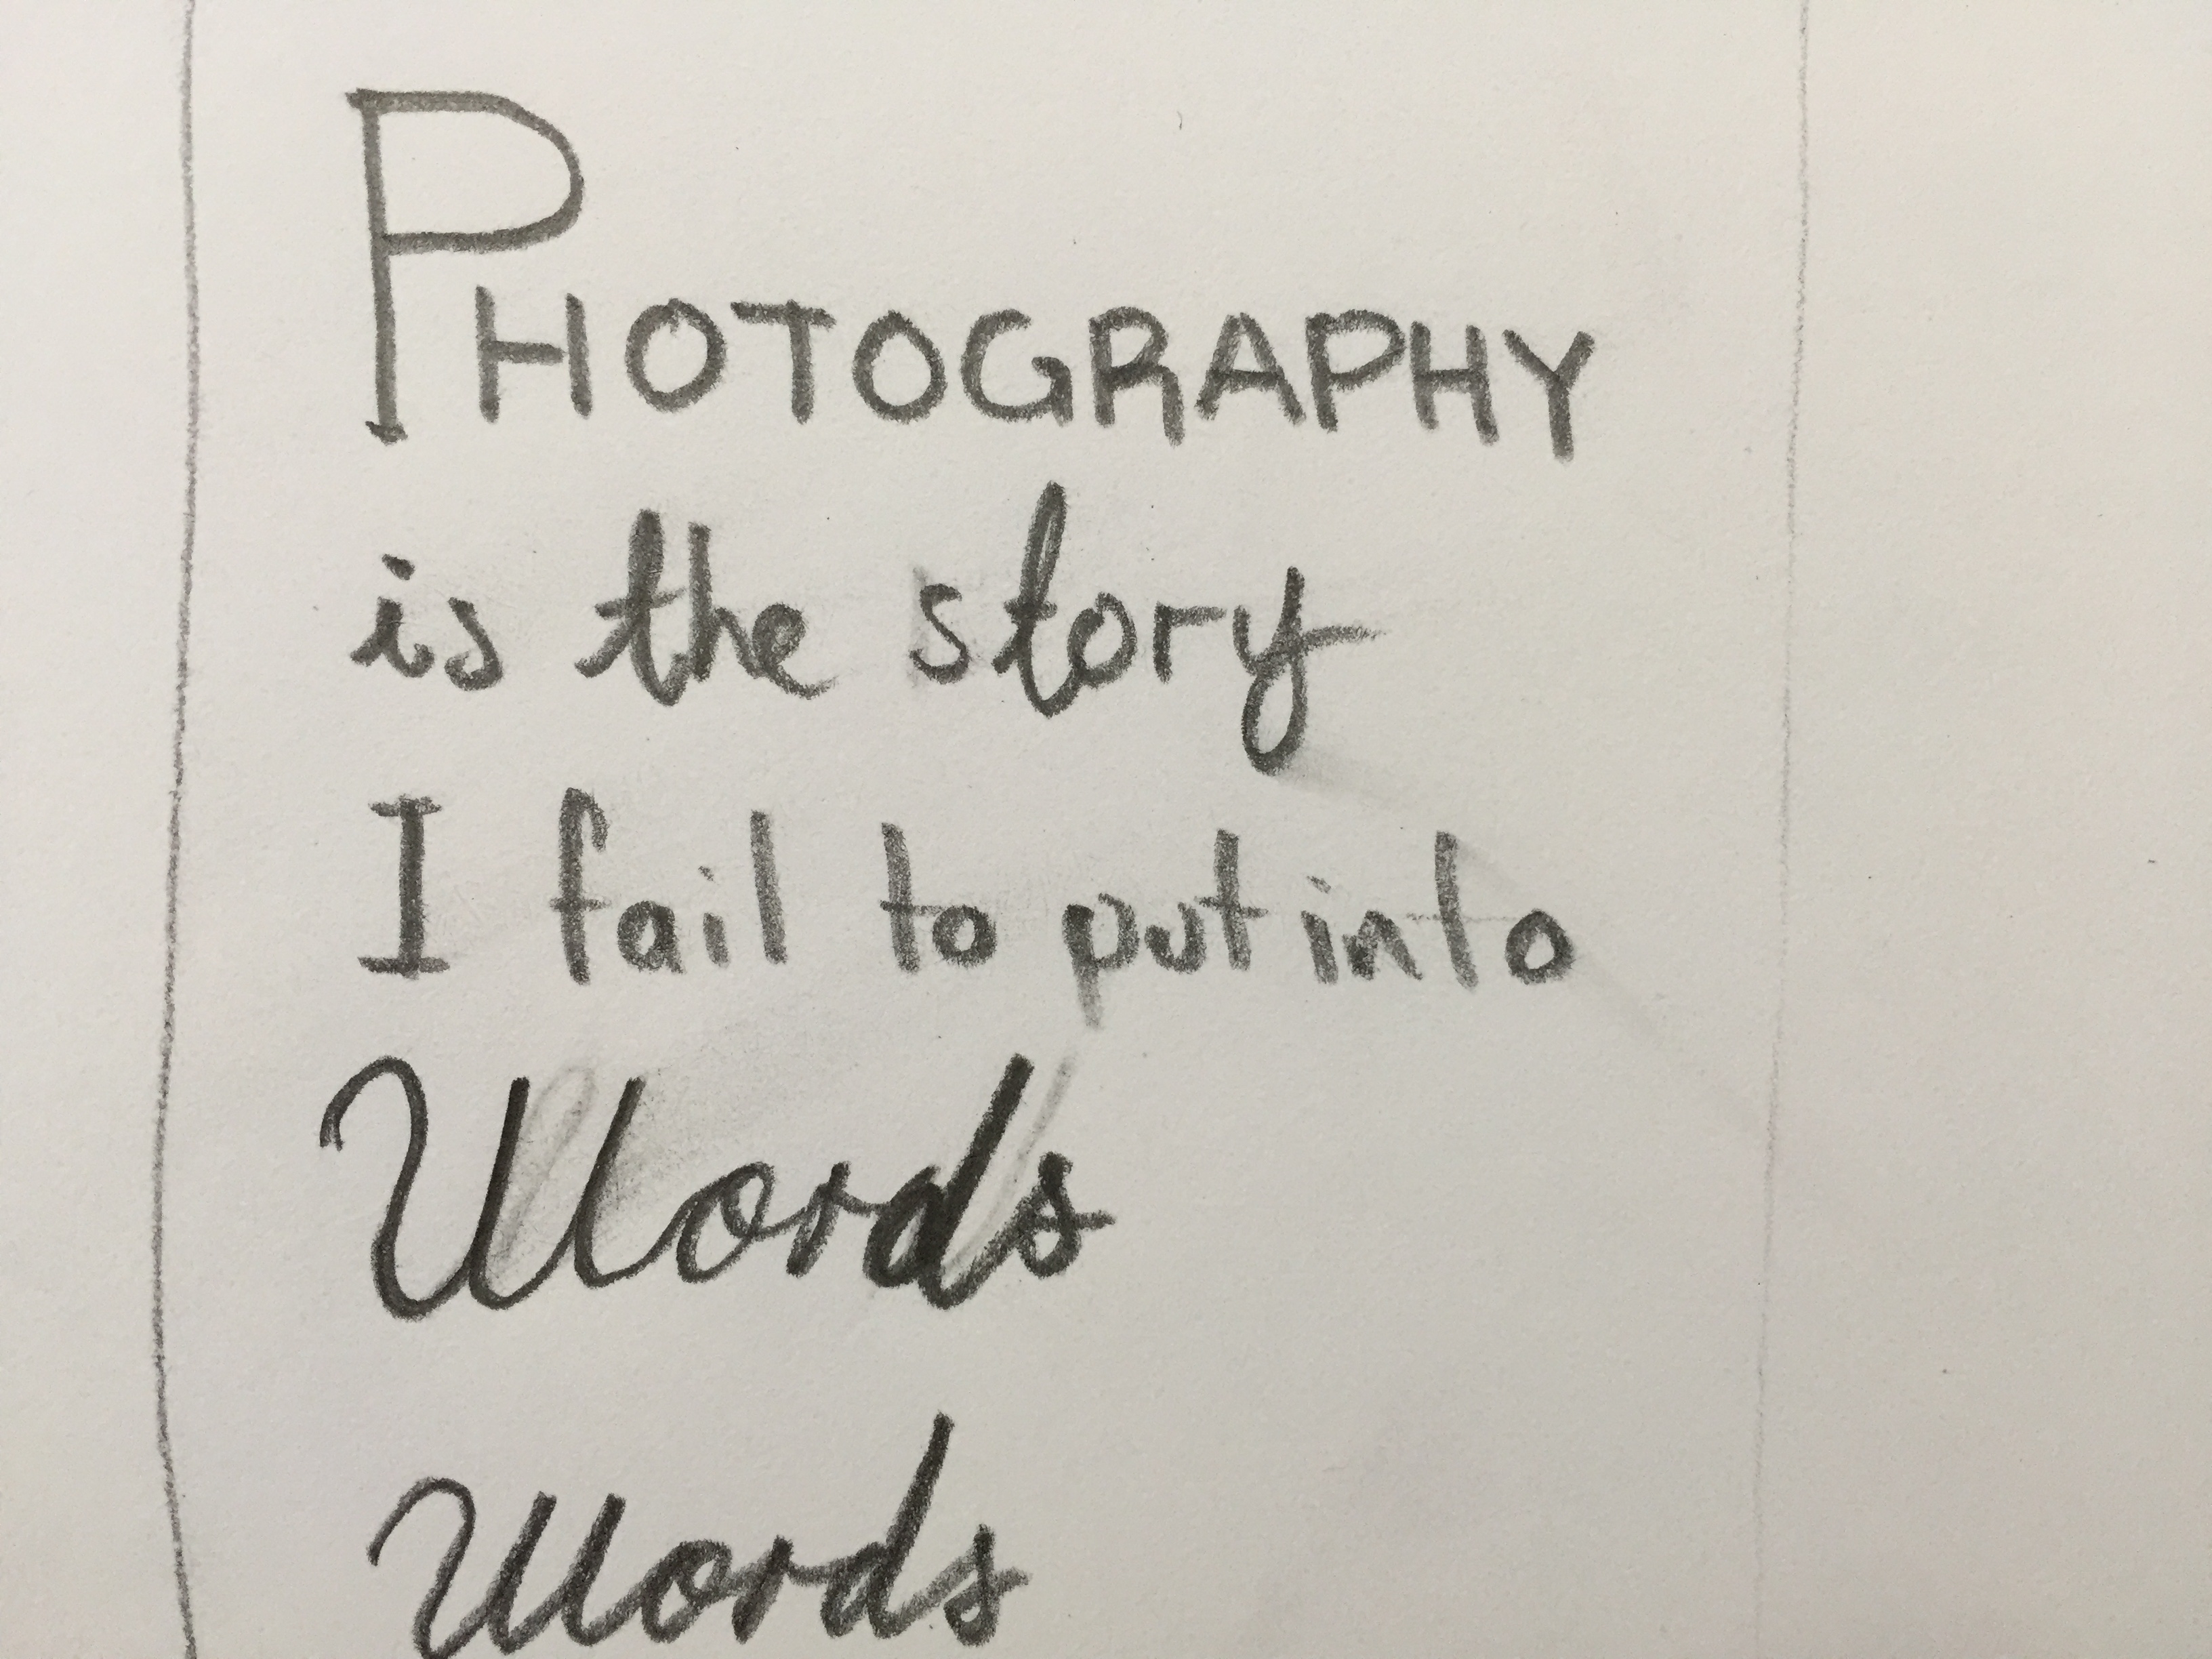 PHOTOGRAPHY
is the story
I fail to put into
Words
Words